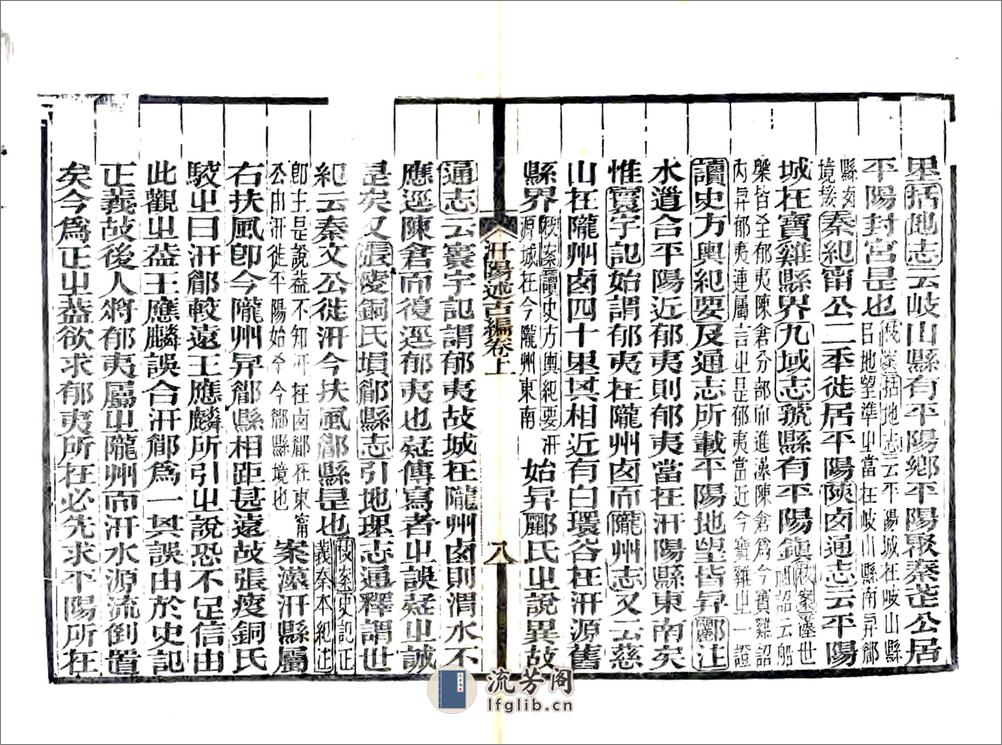 里括地志云岐山縣有平陽鄉平陽聚秦公居
平陽封宮是也案括地志云平陽城在岐山縣
㠯地望準之當在岐山縣南與郿
縣西
境接秦紀甯公二年徙居平陽陝西通志云平陽
城在寶雞縣界九域志虢縣有平陽鎮案世
詔云船
槃皆至郁夷陳倉分部而進漾陳倉爲今寶雞詔
內言郁夷連屬言之是郁夷當近今寶雞之一證
讀史方輿紀要及通志所載平陽地望皆與酈注
水道合平陽近郁夷則郁夷當在汧陽縣東南矣
惟寰宇記始謂郁夷在隴州西而隴州志又云慈
山在隴州西四十里其相近有白環谷在汧源舊
縣界案讀史方輿紀要汧
源城在今隴州東南始與酈氏之說異故
汧陽述古編卷上 八
通志云寰宇記謂郁夷故城在隴州西則渭水不
應逕陳倉而復逕郁夷也疑傳寫者之誤疑之誠
是矣又張瘦銅氏塤郿縣志引地理志通釋謂世
紀云秦文公徙汧今扶風郿縣是也案史記正
義秦本紀注
卽主是說葢不知汧在西郿在東甯
公由汧徙平陽始今郿縣境也案漢汧縣屬
右扶風卽今隴州與郿縣相距甚遠故張瘦銅氏
駮之曰汧郿較遠王應麟所引之說恐不足信由
此觀之葢王應麟誤合汧郿爲一其誤由於史記
正義故後人將郁夷屬之隴州而汧水源流倒置
矣今爲正之葢欲求郁夷所在必先求平陽所在
流芳阁
lfglib.cn